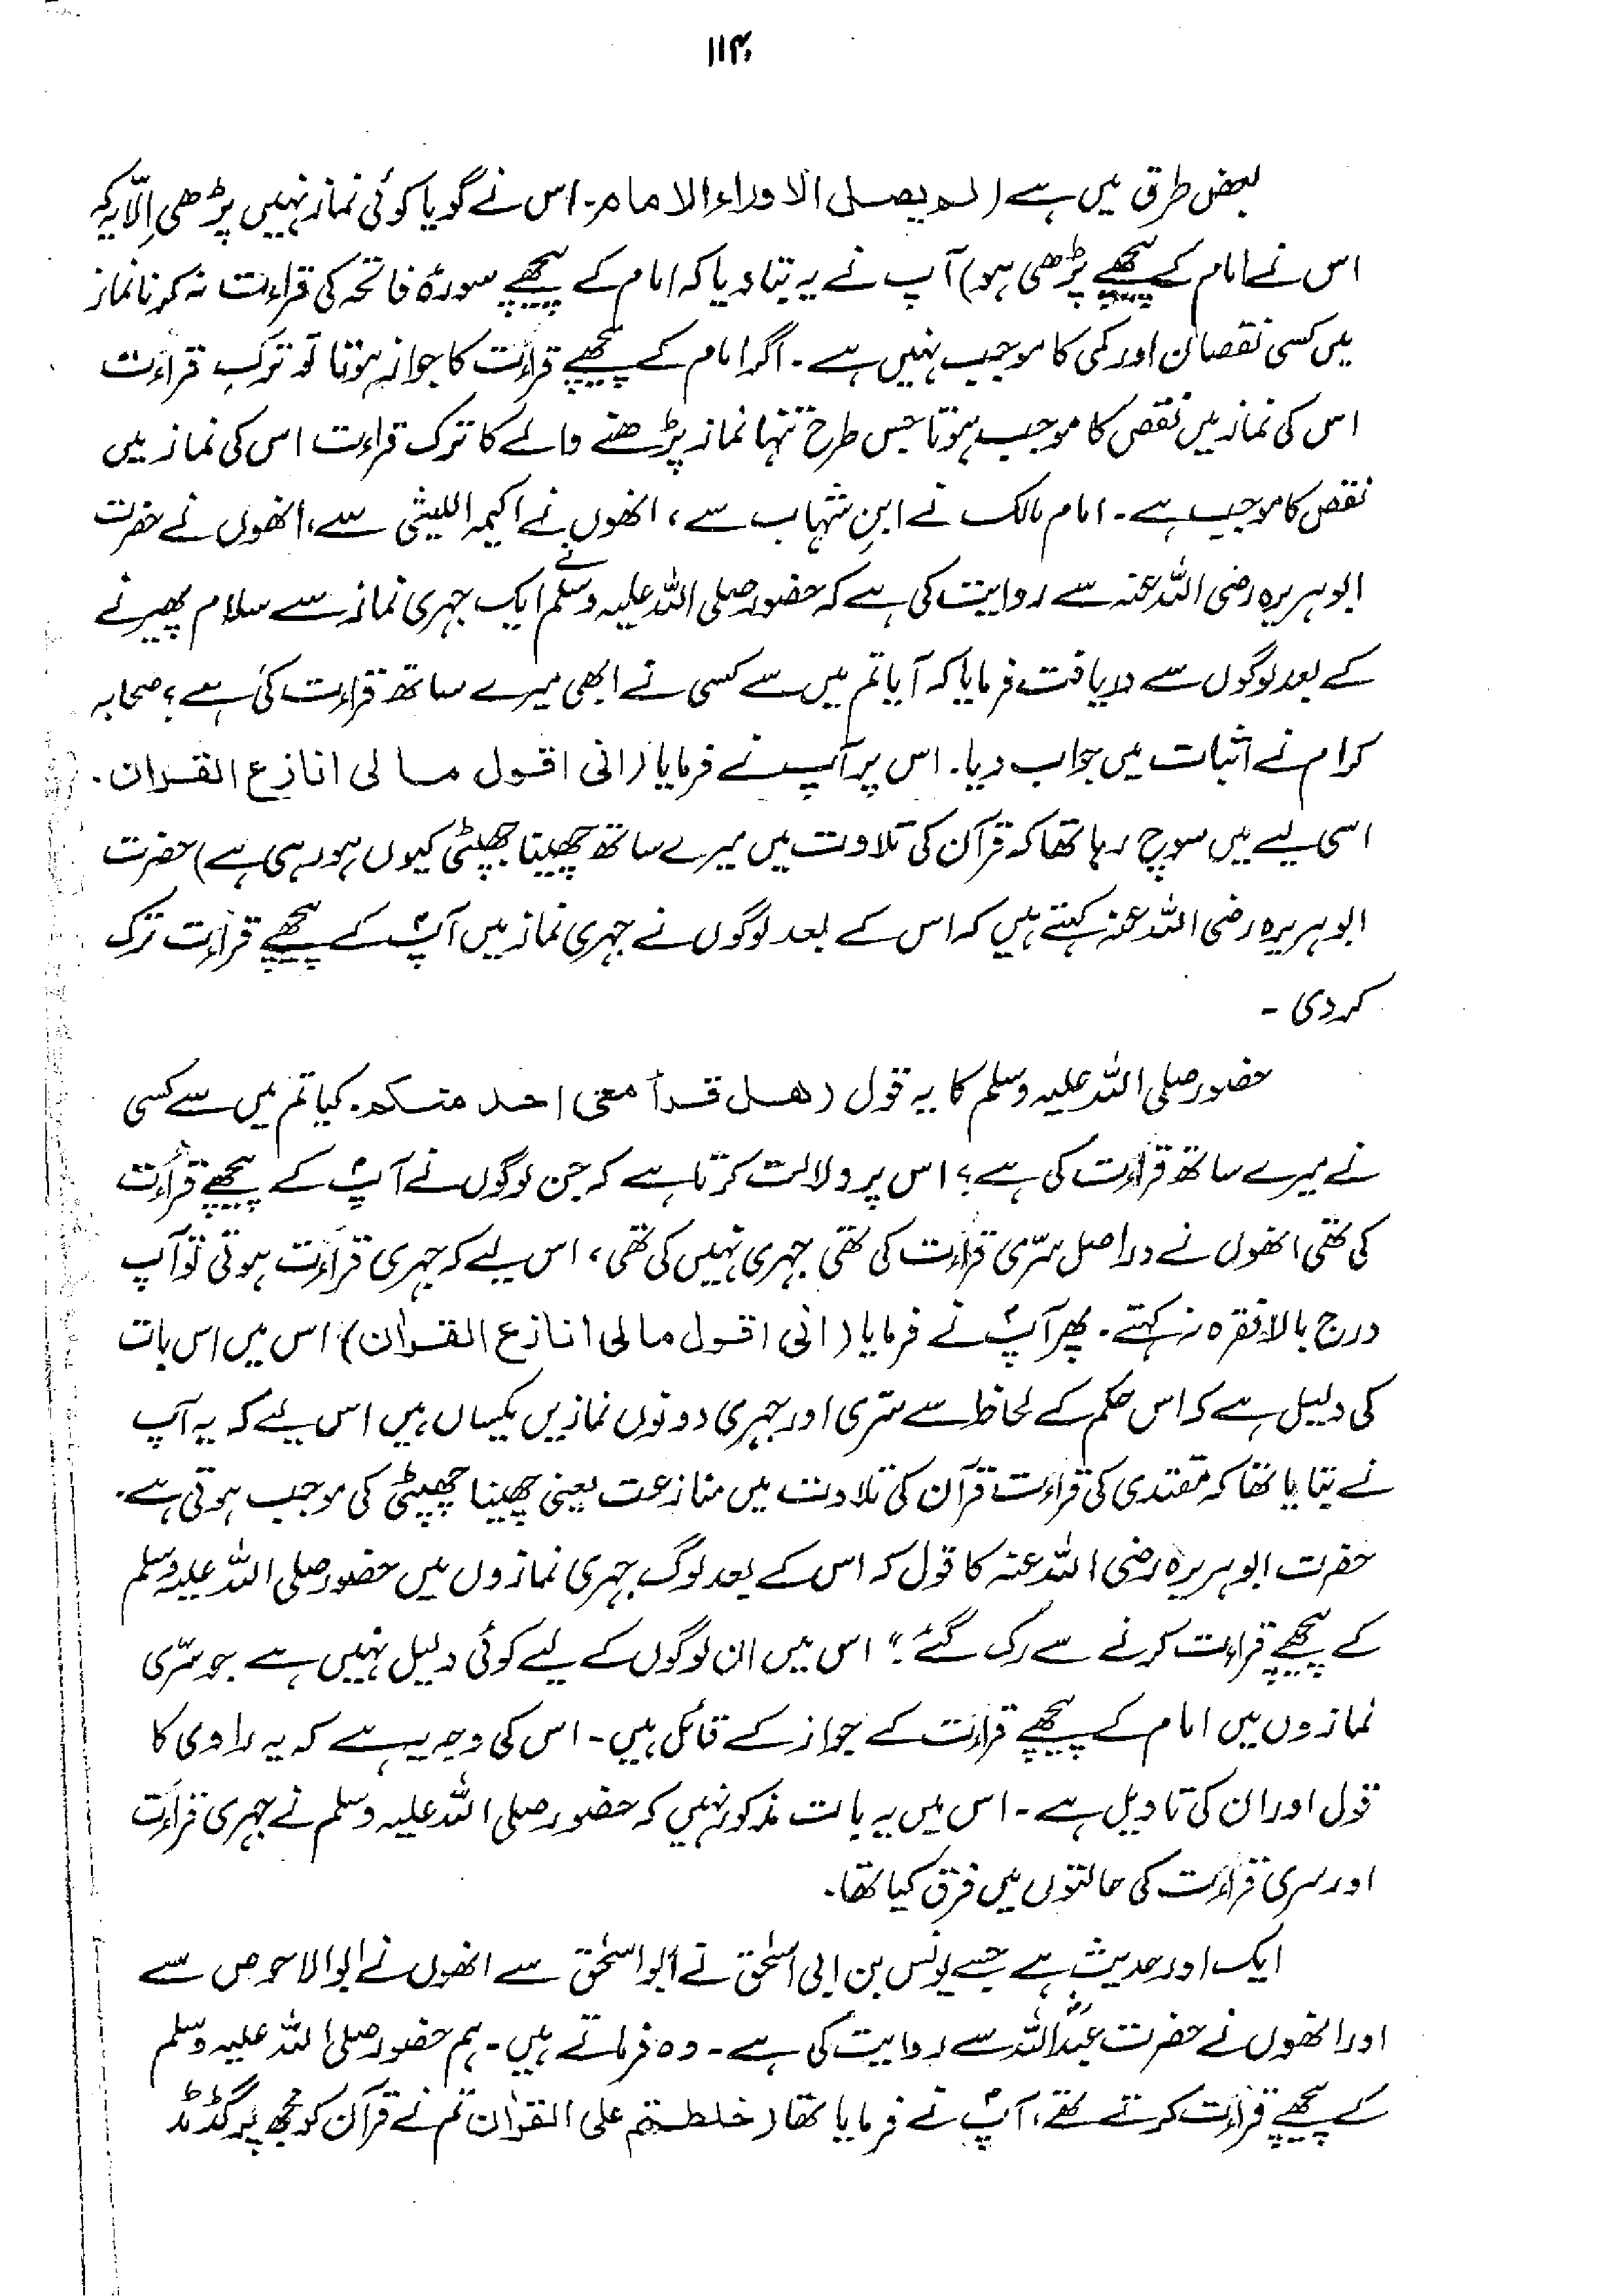 ۱۱۴
بعض طرق میں ہے (لم یصلی الا وراء الامام۔ اس نے گویا کوئی نماز نہیں پڑھی اِلّا یہ کہ
اس نے امام کے پیچھے پڑھی ہو) آپ نے یہ بتا دیا کہ امام کے پیچھے سورۂ فاتحہ کی قراءت نہ کرنا نماز
میں کسی نقصان اور کمی کا موجب نہیں ہے۔ اگر امام کے پیچھے قرأت کا جواز ہوتا تو ترکِ قراءت
اس کی نماز میں نقص کا موجب ہوتا جس طرح تنہا نماز پڑھنے والے کا ترک قراءت اس کی نماز میں
نقص کا موجب ہے۔ امام مالک نے ابنِ شہاب سے، انھوں نے اکیمہ اللیثی سے، انھوں نے حضرت
ابوہریرہ رضی اللہ عنہ سے روایت کی ہے کہ حضور صلی اللہ علیہ وسلم نے ایک جہری نماز سے سلام پھیرنے
کے بعد لوگوں سے دریافت فرمایا کہ آیا تم میں سے کسی نے ابھی میرے ساتھ قراءت کی ہے؟ صحابہ
کرام نے اثبات میں جواب دیا۔ اس پر آپ نے فرمایا (انی اقول مالی انازع القران۔
اسی لیے میں سوچ رہا تھا کہ قرآن کی تلاوت میں میرے ساتھ چھینا جھپٹی کیوں ہو رہی ہے) حضرت
ابوہریرہ رضی اللہ عنہ کہتے ہیں کہ اس کے بعد لوگوں نے جہری نماز میں آپؐ کے پیچھے قراءت ترک
کر دی۔
حضور صلی اللہ علیہ وسلم کا یہ قول (ھل قرأ معی احد منکم۔ کیا تم میں سے کسی
نے میرے ساتھ قراءت کی ہے؟ اس پر دلالت کرتا ہے کہ جن لوگوں نے آپؐ کے پیچھے قرأت
کی تھی انھوں نے دراصل سرّی قراءت کی تھی جہری نہیں کی تھی، اس لیے کہ جہری قراءت ہوتی تو آپ
درج بالا فقرہ نہ کہتے۔ پھر آپؐ نے فرمایا (انی اقول مالی انازع القران) اس میں اس بات
کی دلیل ہے کہ اس حکم کے لحاظ سے سّری اور جہری دونوں نمازیں یکساں ہیں اس لیے کہ یہ آپ
نے بتایا تھا کہ مقتدی کی قراءت قرآن کی تلاوت میں منازعت یعنی چھینا جھپٹی کی موجب ہوتی ہے۔
حضرت ابوہریرہ رضی اللہ عنہ کا قول کہ اس کے بعد لوگ جہری نمازوں میں حضور صلی اللہ علیہ وسلم
کے پیچھے قراءت کرنے سے رک گئے" اس میں ان لوگوں کے لیے کوئی دلیل نہیں ہے جو سّری
نمازوں میں امام کے پیچھے قراءت کے جواز کے قائل ہیں۔ اس کی وجہ یہ ہے کہ یہ راوی کا
قول اور ان کی تاویل ہے۔ اس میں یہ بات مذکور نہیں کہ حضور صلی اللہ علیہ وسلم نے جہری قرأت
اور سری قراءت کی حالتوں میں فرق کیا تھا۔
ایک اور حدیث ہے جسے یونس بن ابی اسحٰق نے ابو اسحٰق سے انھوں نے ابوالاحوص سے
اور انھوں نے حضرت عبداللہؓ سے روایت کی ہے۔ وہ فرماتے ہیں۔ ہم حضور صلی اللہ علیہ وسلم
کے پیچھے قراءت کرتے تھے، آپؐ نے فرمایا تھا (خلطتم علی القران تم نے قرآن کو مجھ پر گڈمڈ